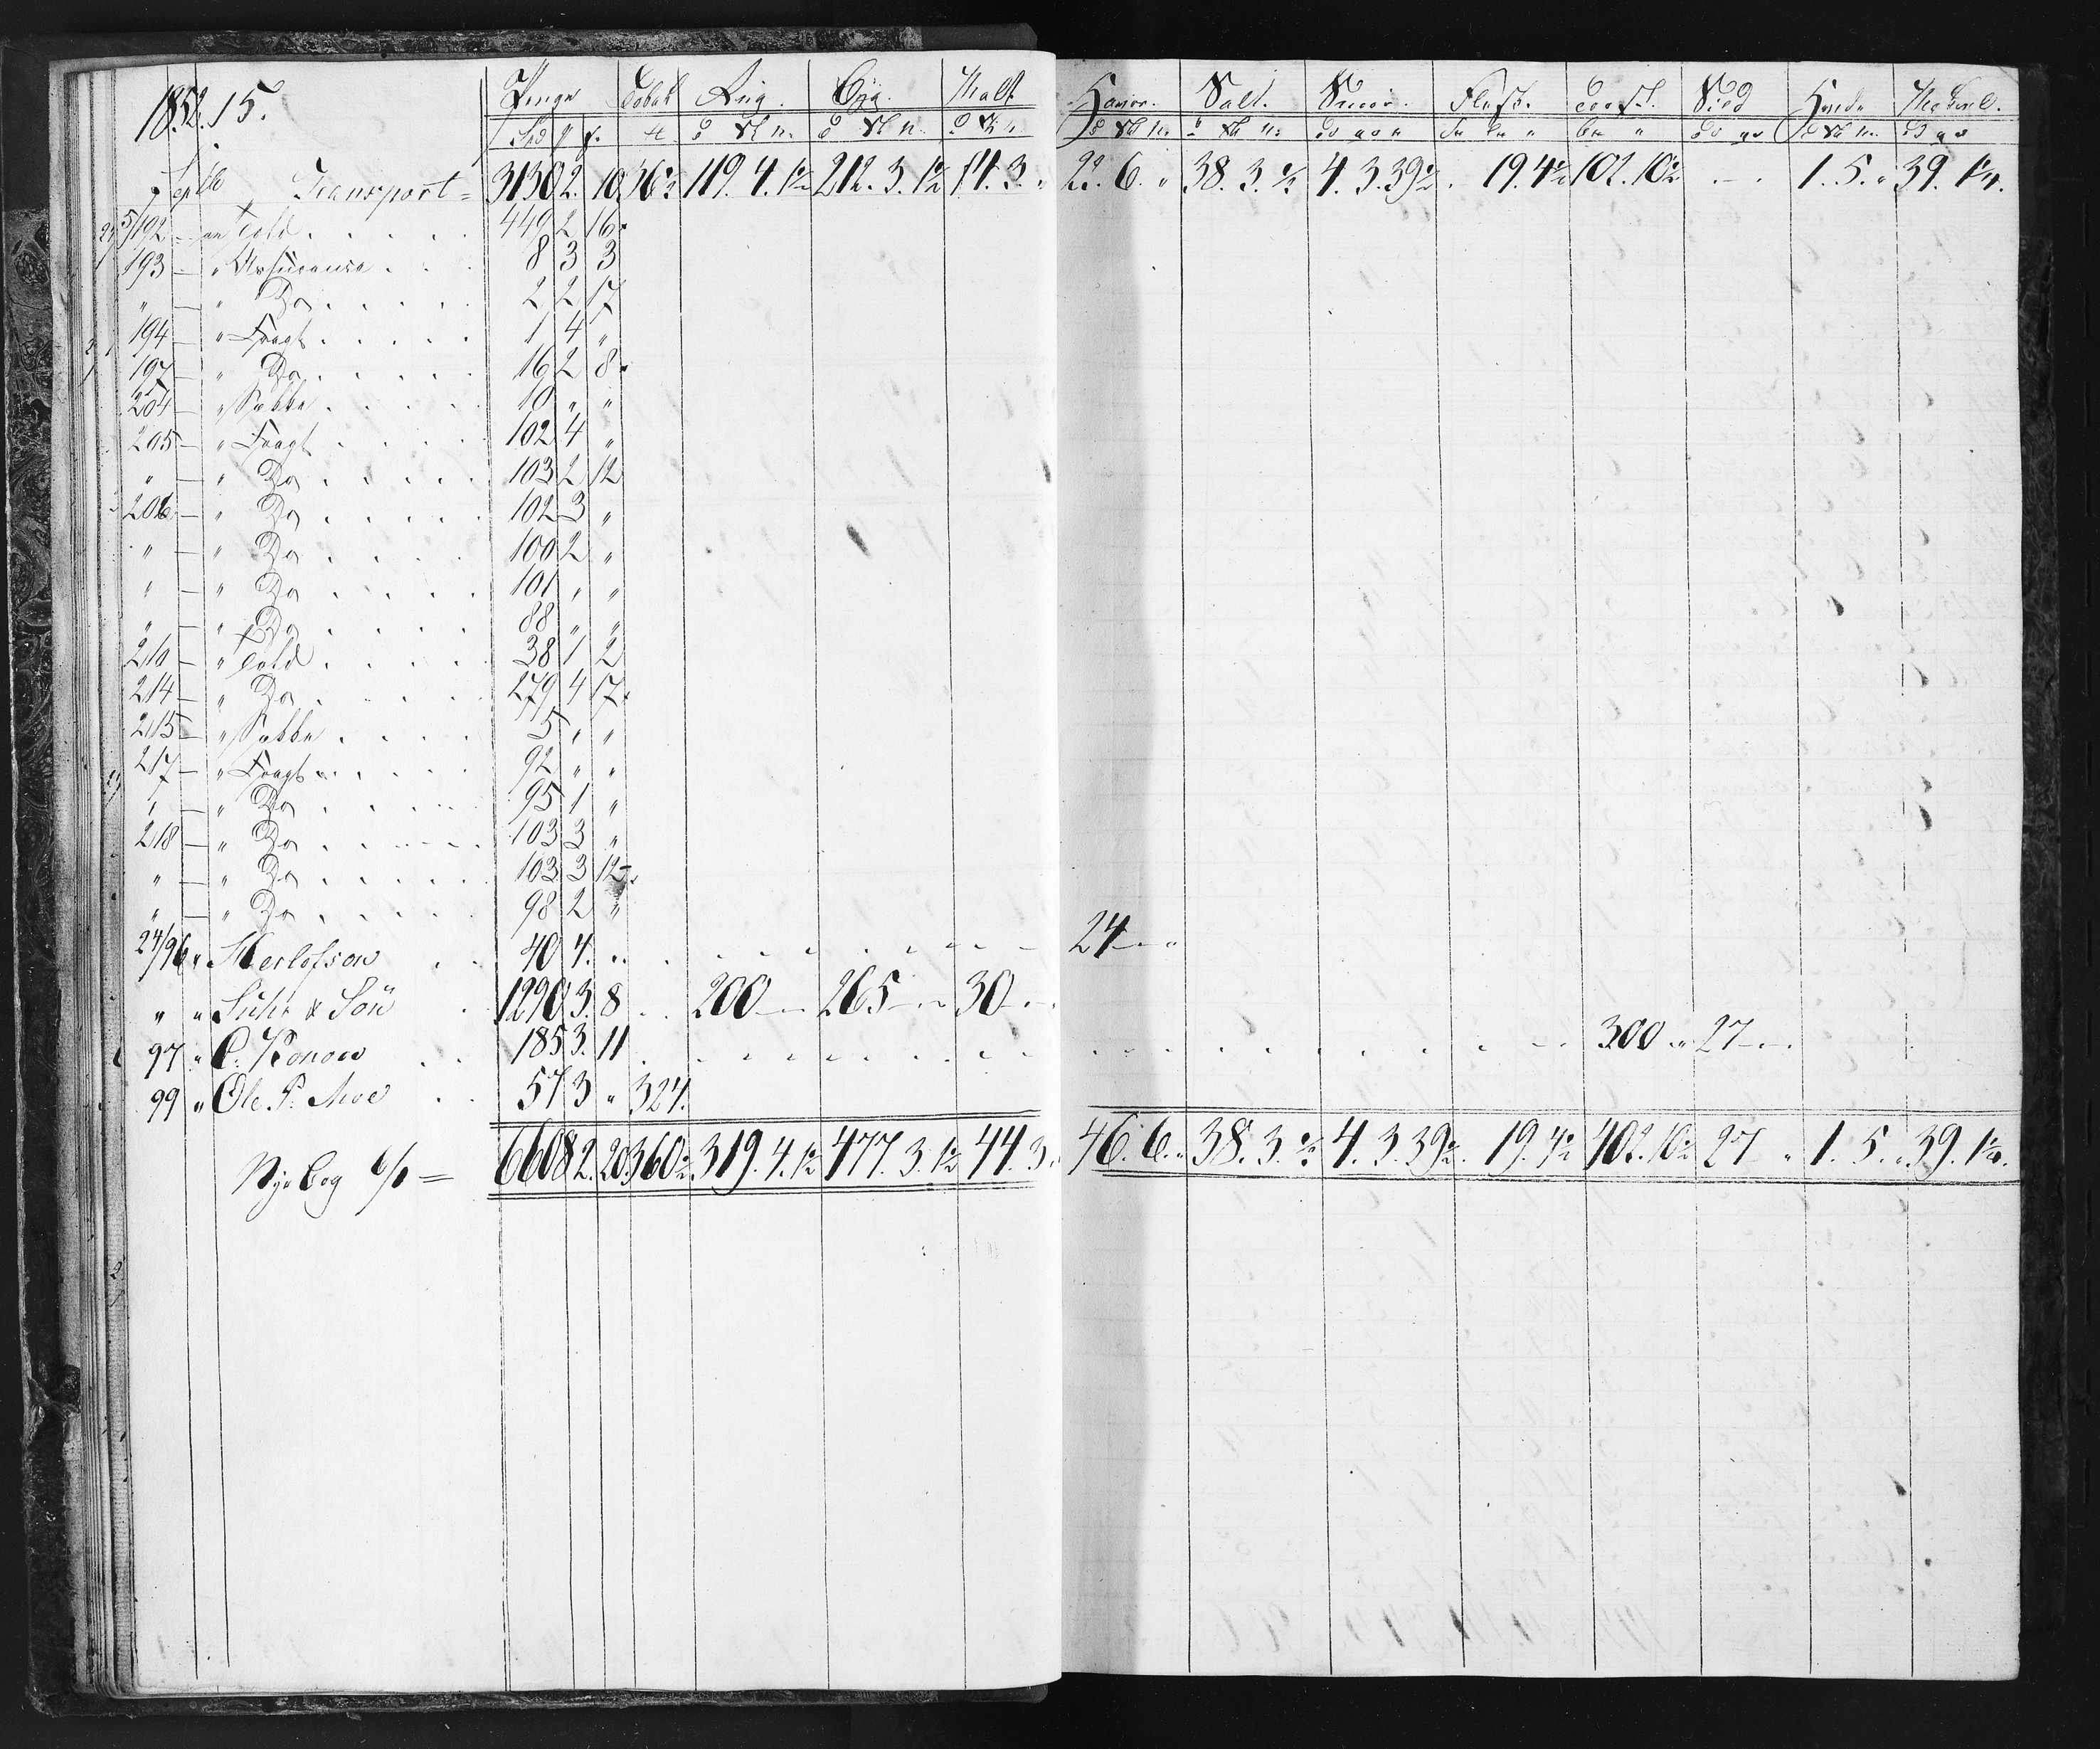 1852. 15. Penge Tobak Rug. Byg. Malt Havre. Salt. Smör. Flesk. Torsk. Sild Hvede
Spd
Septbr Transport = 3130 2. 10 36½ 119. 4. 1½ 212. 3. 1½ 14. 3. „ 22. 6. „ 38. 3. ½ 4. 3. 39½ . 19. 4½ 102. 10½ — 1. 5. „ 39. 1¼.
5/192 — an Told . . . . . 449 2 16.
193 — „ Assurance . . . 8 3 3
„ — „ Do . . . . . 2 2 17
194 — „ Fragt . . . . . 1 4 „
197 — „ Do . . . . . 16 2 8.
204 — „ Sæbbe . . . . . 10 „ „
205 — „ Fragt . . . . . 102 4 „
„ — „ Do . . . . . 103 2 12
206 — „ Do . . . . . 102 3 „
„ — „ Do . . . . . 100 2 „
„ — „ Do . . . . . 101 „ „
„ — „ Do . . . . . 88 „ „
210 — „ Told . . . . . 38 1 2
214 — „ Do . . . . . 279 4 17.
215 — „ Sæbbe . . . . 5 „ „
217 — „ Fragt . . . . . 92 „ „
„ — „ Do . . . . . 95 1 „
218 — „ Do . . . . . 103 3 „
„ — „ Do . . . . . 103 3 12
„ — „ Do . . . . . 98 2 „
24/96 „ Herlofson . . 40 4. „ . . . . . . . . 24 — „
„ „ Suhr & Sön . 1290 3. 8 . . 200 — „ 265 — „ 30 „ —
97 „ C. Konow . . 185 3. 11 . . . . . . . . . . . . 300 „ 27 — „
99 „ Ole P. Moe . . 57 3 „ 324.
Nye Bog 6/1 = 6608 2. 20 360½. 319. 4. 1½ 477. 3. 1½ 44. 3. „ 46. 6. „ 38. 3. ½ 4. 3. 39½. 19. 4½ 402. 10½ 27 „ 1. 5. „ 39. 1¼.